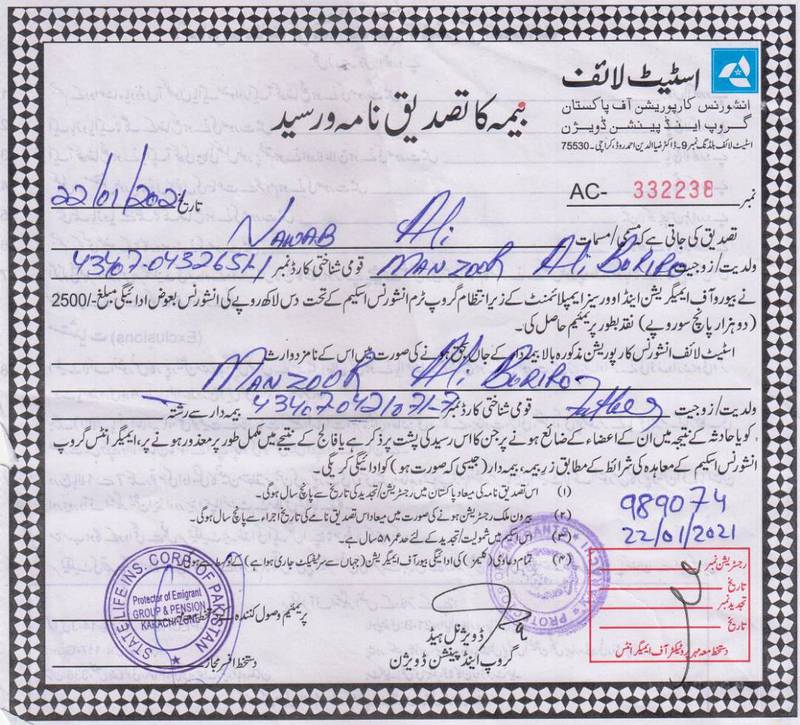 اسٹیٹ لائف
انشورنس کارپوریشن آف پاکستان
گروپ اینڈ پینشن ڈویژن
اسٹیٹ لائف بلڈنگ نمبر 9- ڈاکٹر ضیاالدین احمد روڈ، کراچی- 75530
بیمہ کا تصدیق نامہ و رسید
نمبر AC- 332238
تاریخ 22/01/202
تصدیق کی جاتی ہے کہ مسمی/مسمات NAWAB Ali
ولدیت/زوجیت MANZOOR Ali BORIRO قومی شناختی کارڈ نمبر
نے بیورو آف ایمیگریشن اینڈ اوورسیز ایمپلائمنٹ کے زیر انتظام گروپ ٹرم انشورنس اسکیم کے تحت دس لاکھ روپے کی انشورنس بعوض ادائیگی مبلغ -/2500
(دو ہزار پانچ سو روپے) نقد بطور پریمیم حاصل کی۔
اسٹیٹ لائف انشورنس کارپوریشن مذکورہ بالا بیمہ دار کے جاں بحق ہونے کی صورت میں اس کے نامزد وارث
MANZOOR Ali BORIRO
ولدیت/زوجیت father قومی شناختی کارڈ نمبر 43407-0421071-7 بیمہ دار سے رشتہ
کو یا حادثہ کے نتیجہ میں ان کے اعضاء کے ضائع ہونے پر جن کا اس رسید کی پشت پر ذکر ہے یا فالج کے نتیجے میں مکمل طور پر معذور ہونے پر، ایمیگرانٹس گروپ
انشورنس اسکیم کے معاہدہ کی شرائط کے مطابق زر بیمہ، بیمہ دار (جیسی کہ صورت ہو) کو ادائیگی کریگی۔
(۱) اس تصدیق نامہ کی میعاد پاکستان میں رجسٹریشن/تجدید کی تاریخ سے پانچ سال ہوگی۔
(۲) بیرون ملک رجسٹریشن ہونے کی صورت میں میعاد اس تصدیق نامے کی تاریخ اجراء سے پانچ سال ہوگی۔
(۳) اس اسکیم میں شمولیت/تجدید کے لئے حد عمر ۵۸ سال ہے۔
(۴) تمام دعاوی (کلیمز) کی ادائیگی بیورو آف ایمیگریشن (جہاں سے سرٹیفکیٹ جاری ہوا ہے) کے ذریعے ہوگی
989074
22/01/2021
رجسٹریشن نمبر
تاریخ
تجدید نمبر
تاریخ
دستخط معہ مہر پروٹیکٹر آف ایمیگرانٹس
STATE LIFE INS. CORP. OF PAKISTAN
Protector of Emigrant
GROUP & PENSION
KARACHI ZONE
پریمیم وصول کنندہ
دستخط افسر مجاز
ڈویژنل ہیڈ
گروپ اینڈ پینشن ڈویژن